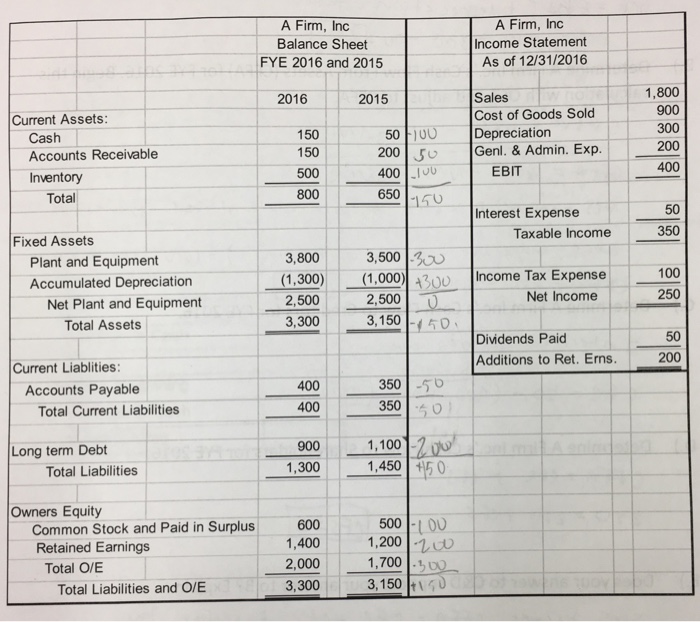 A Firm, Inc
Balance Sheet
FYE 2016 and 2015
2016 2015
Current Assets:
Cash 150 50 -100
Accounts Receivable 150 200 50
Inventory 500 400 -100
Total 800 650 -150
Fixed Assets
Plant and Equipment 3,800 3,500 -300
Accumulated Depreciation (1,300) (1,000) +300
Net Plant and Equipment 2,500 2,500 0
Total Assets 3,300 3,150 -150
Current Liablities:
Accounts Payable 400 350 -50
Total Current Liabilities 400 350 50
Long term Debt 900 1,100 -200
Total Liabilities 1,300 1,450 +150
Owners Equity
Common Stock and Paid in Surplus 600 500 -100
Retained Earnings 1,400 1,200 -200
Total O/E 2,000 1,700 -300
Total Liabilities and O/E 3,300 3,150
A Firm, Inc
Income Statement
As of 12/31/2016
Sales 1,800
Cost of Goods Sold 900
Depreciation 300
Genl. & Admin. Exp. 200
EBIT 400
Interest Expense 50
Taxable Income 350
Income Tax Expense 100
Net Income 250
Dividends Paid 50
Additions to Ret. Erns. 200